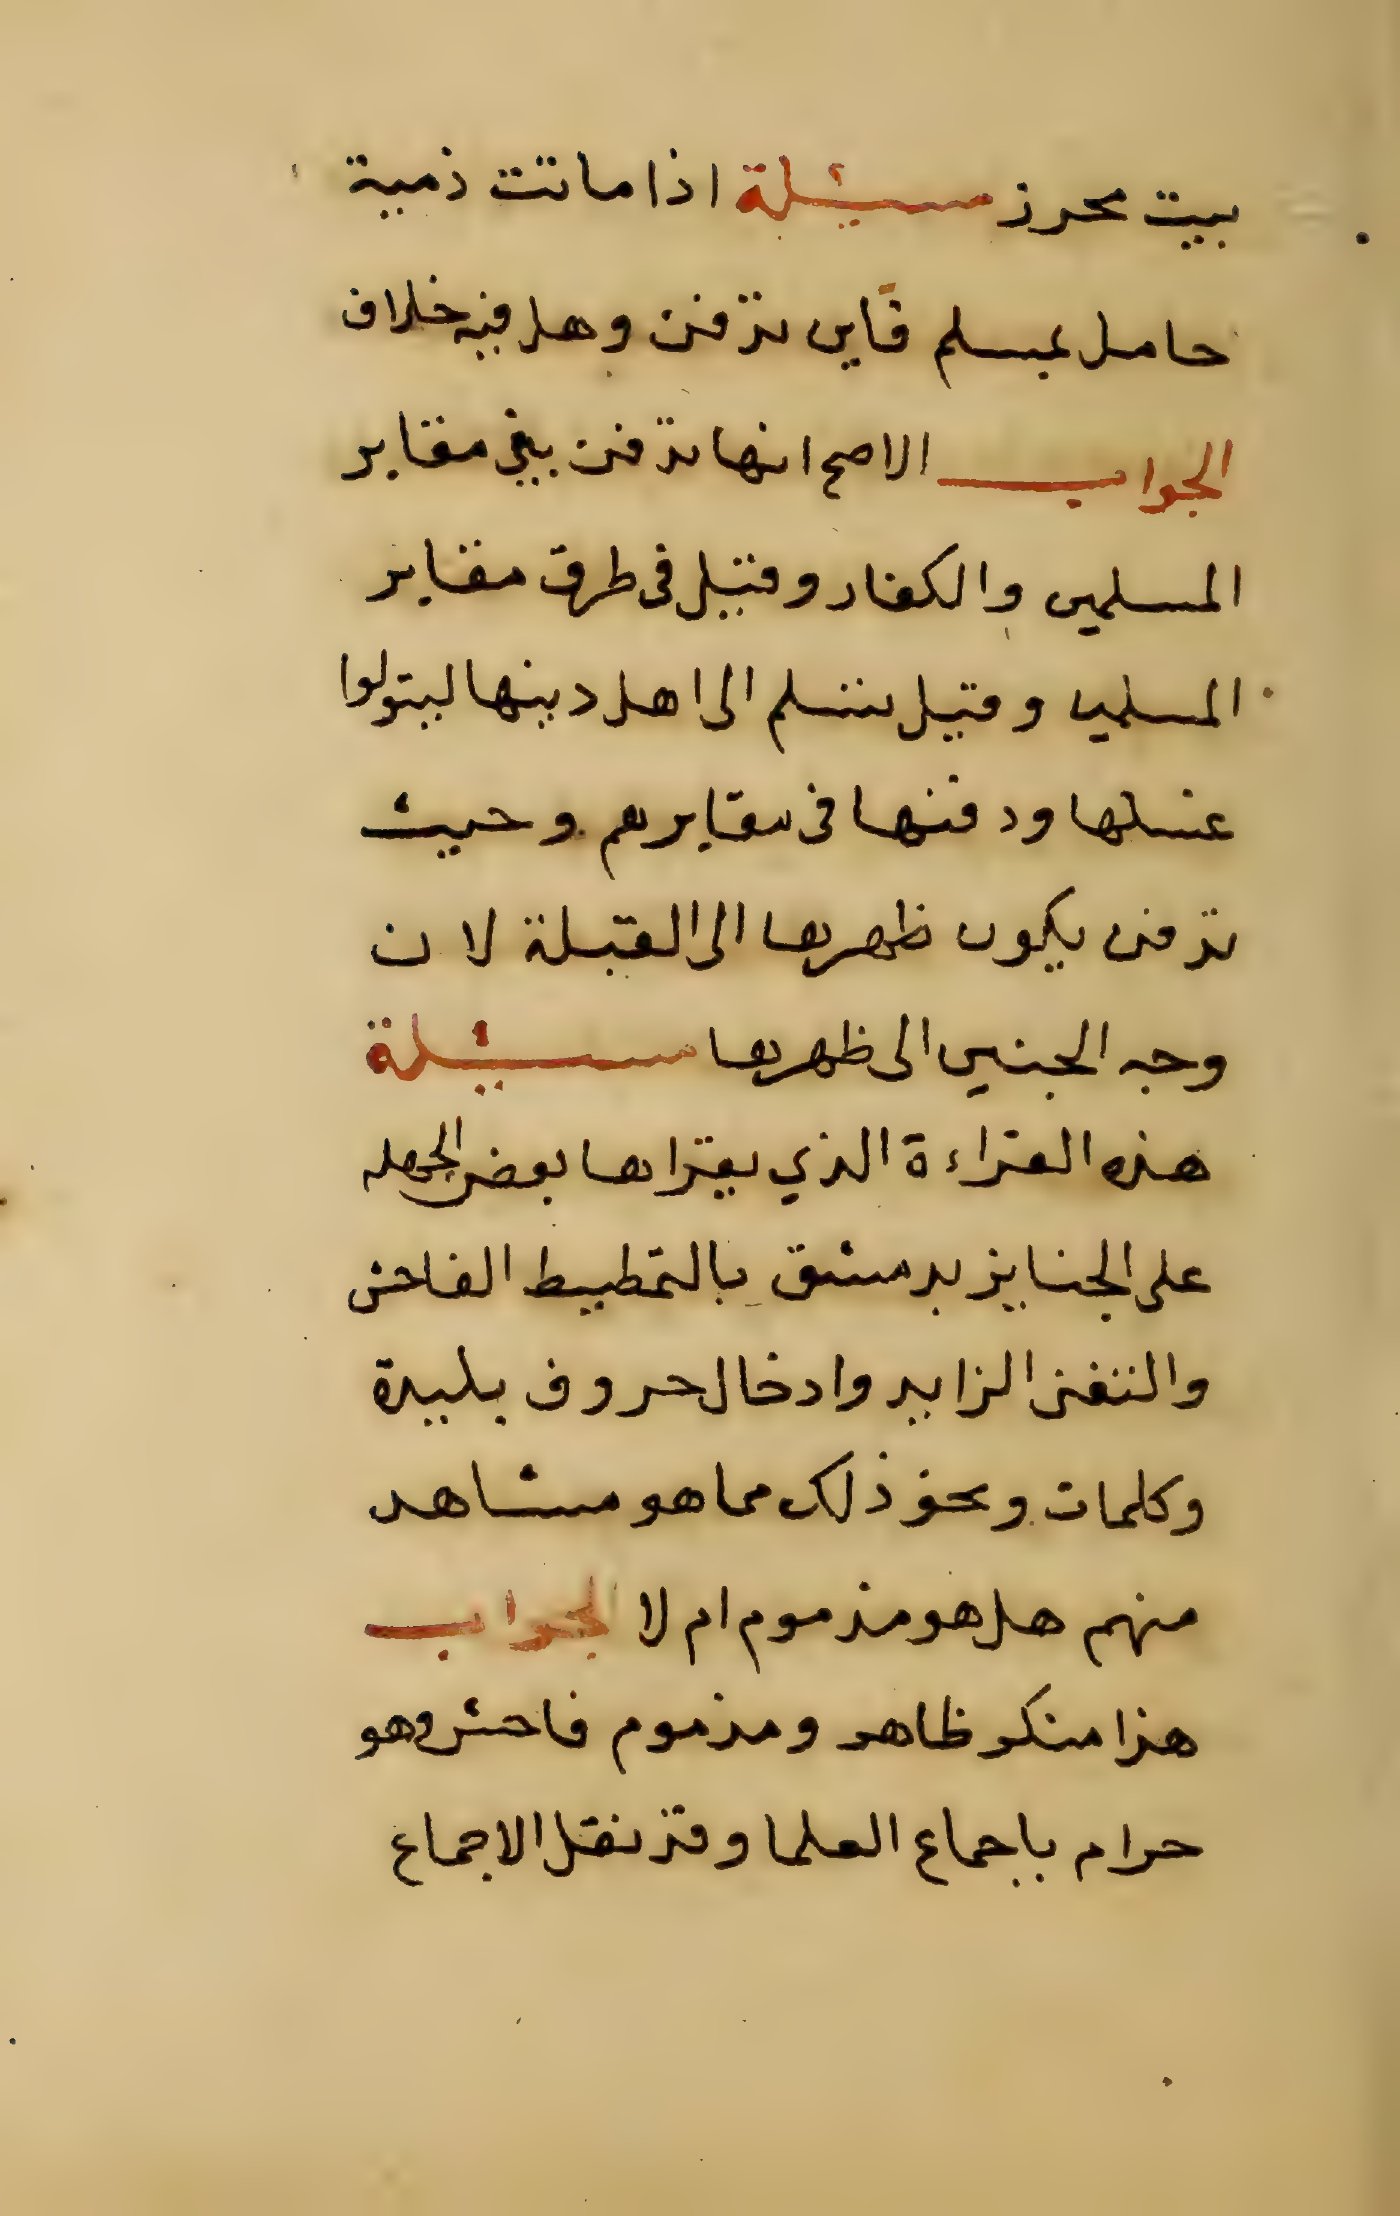 بيت محرز سئيلة اذا ماتت ذمية
حامل بمسلم فاين تدفن وهل فيه خلاف
الجواب الاصح انها تدفن بين مقابر
المسلمين والكفار وقيل في طرف مقابر
المسلمين وقيل تسلم الى اهل دينها ليتولوا
غسلها ودفنها في مقابرهم وحيث
تدفن يكون ظهرها الى القبلة لان
وجه الجنين الى ظهرها سئيلة
هذه القراءة الذي يقراها بعض الجهله
على الجنايز بدمشق بالتمطيط الفاحش
والتغني الزايد وادخال حروف
وكلمات ونحو ذلك مما هو مشاهد
منهم هل هو مذموم ام لا الجواب
هذا منكر ظاهر ومذموم فاحش وهو
حرام باجماع العلما وقد نقل الاجماع